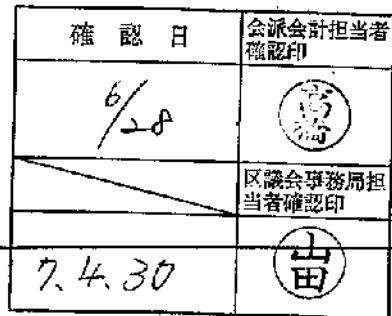 確認日
会派会計担当者
確認印
6/28
高橋
区議会事務局担
当者確認印
7.4.30
山田